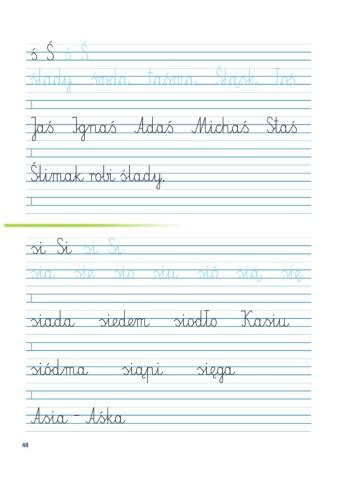 ś Ś ś Ś
ślady środa taśma Śląsk Jaś
Jaś Ignaś Adaś Michaś Staś
Ślimak robi ślady.
si Si si Si
sia sie sio siu sió sią się
siada siedem siodło Kasiu
siódma siąpi sięga
Asia - Aśka
48